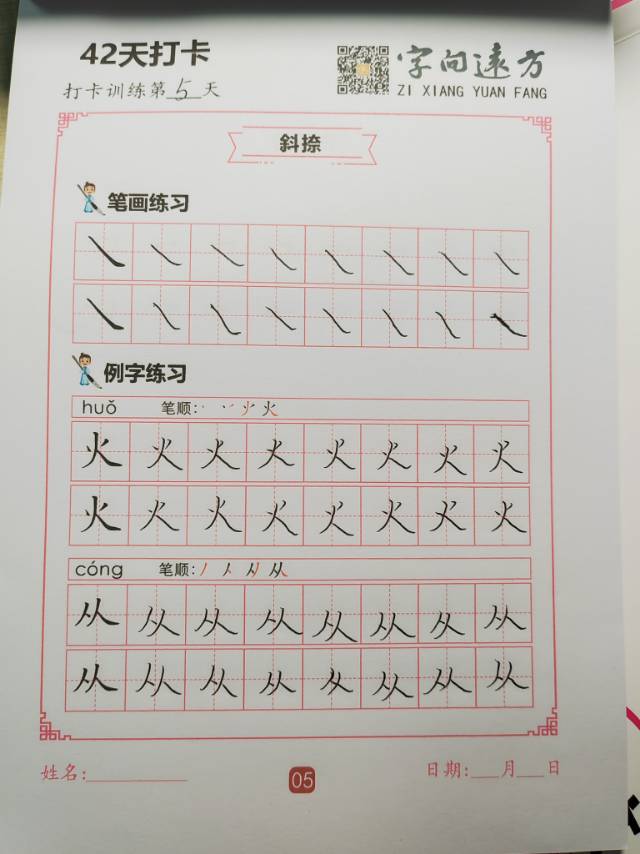 42天打卡
字向远方
打卡训练第5天
ZI XIANG YUAN FANG
斜捺
笔画练习
㇏ ㇏ ㇏ ㇏ ㇏ ㇏ ㇏ ㇏
㇏ ㇏ ㇏ ㇏ ㇏ ㇏ ㇏ ㇏
例字练习
huǒ 笔顺: 火
火 火 火 火 火 火 火 火
火 火 火 火 火 火 火 火
cóng 笔顺: 丿 人 从 从
从 从 从 从 从 从 从 从
从 从 从 从 从 从 从 从
姓名:
05
日期: 月 日